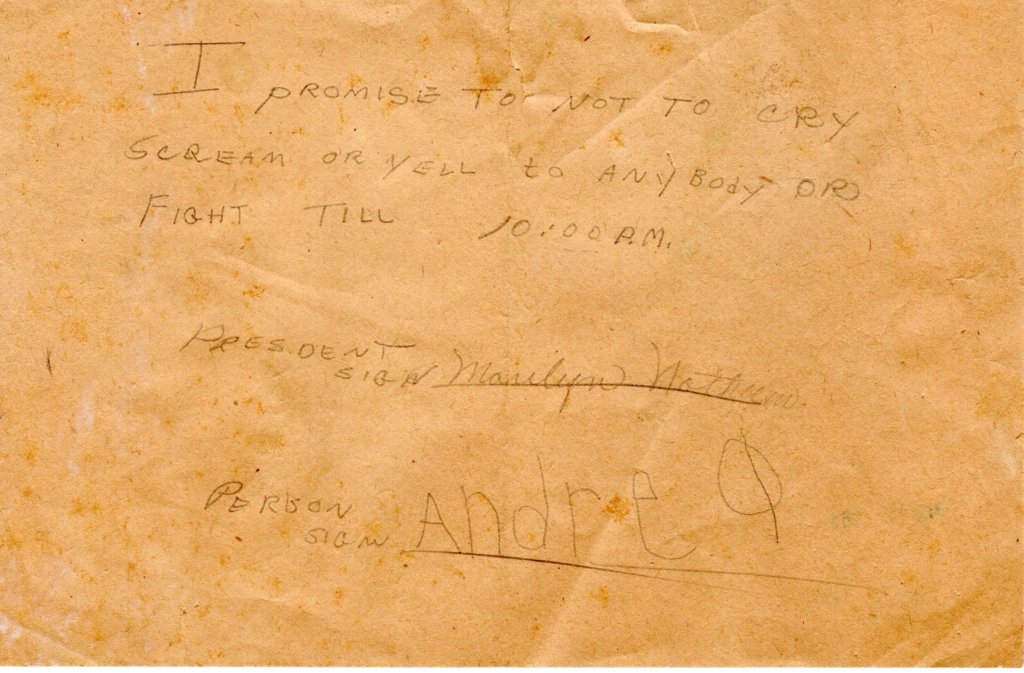 I PROMISE TO NOT TO CRY
SCREAM OR YELL to ANYBODY OR
FIGHT TILL 10:00 A.M.
PRESDENT
SIGN Marilyn
PERSON
SIGN Andre